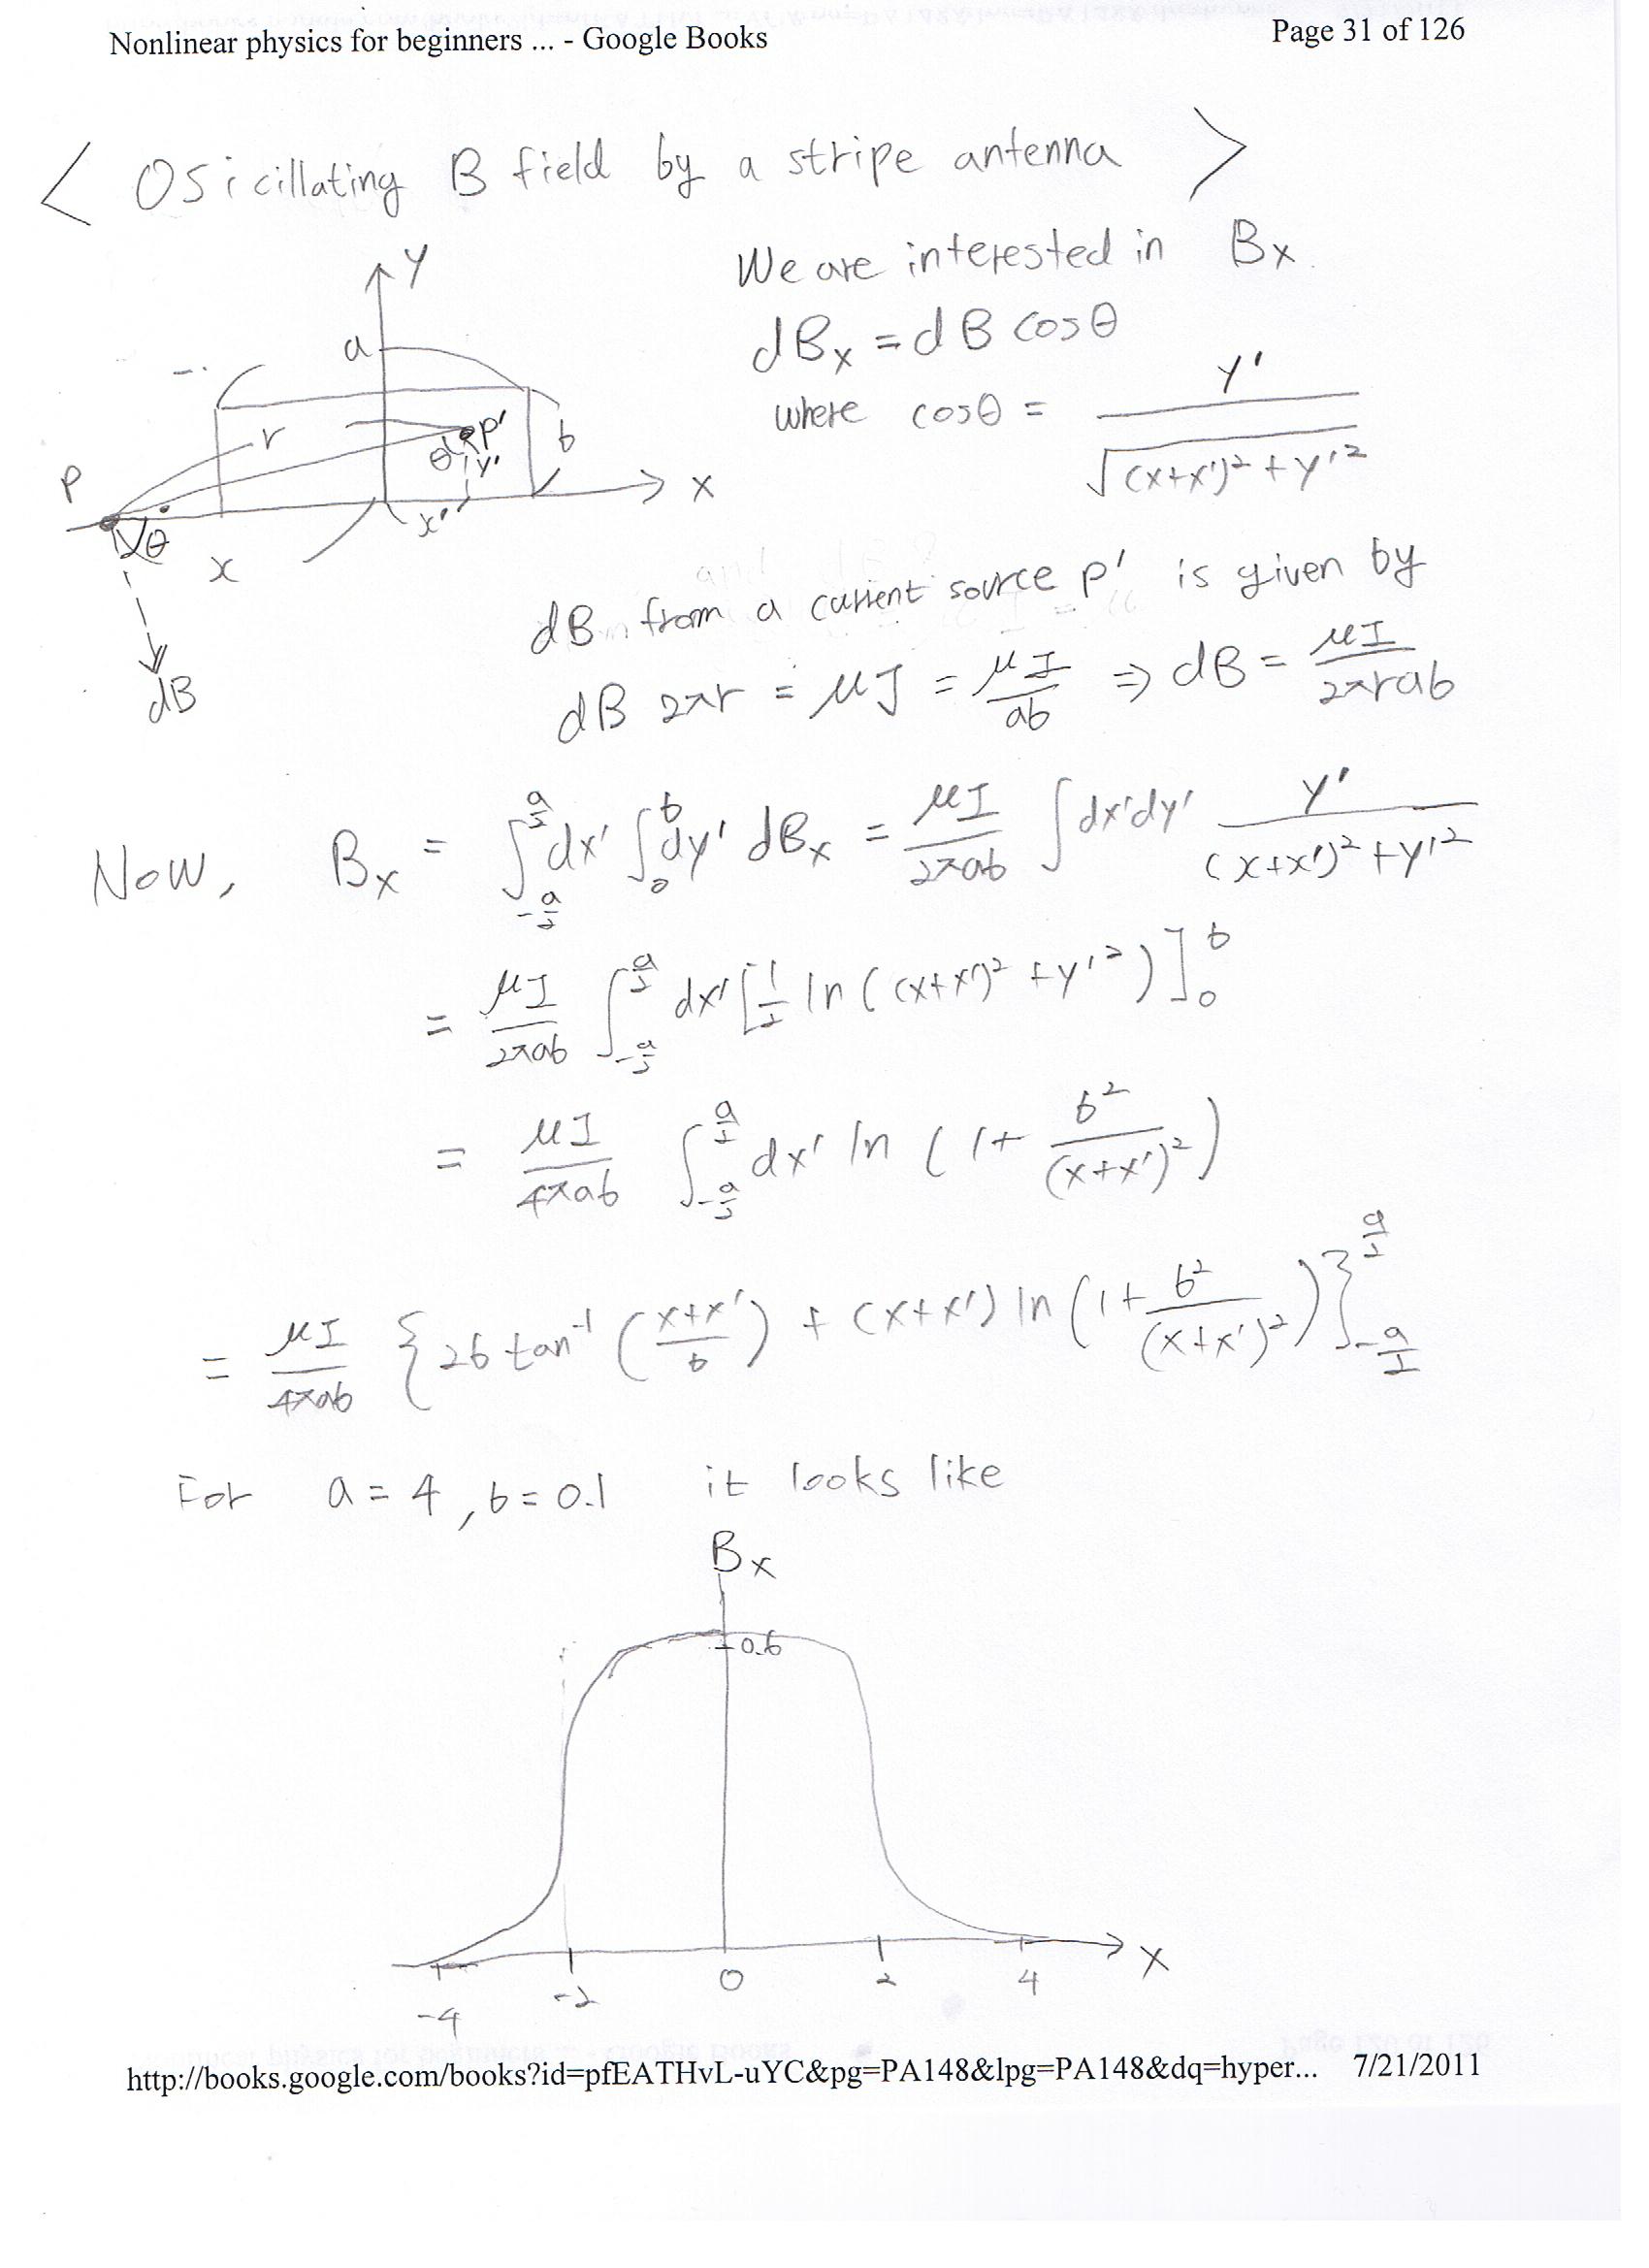 Nonlinear physics for beginners ... - Google Books Page 31 of 126
< OSicillating B field by a stripe antenna >
We are interested in Bx.
dBx = dB cosθ
where cosθ = y' / √((x+x')² + y'²)
Y
a
r
θ P'
b
y'
P
x'
X
θ
x
dB
dB from a current source P' is given by
dB 2πr = μJ = μI/ab ⇒ dB = μI/2πrab
Now, Bx = ∫_{-a/2}^{a/2} dx' ∫_0^b dy' dBx = μI/2πab ∫ dx'dy' y'/((x+x')² + y'²)
= μI/2πab ∫_{-a/2}^{a/2} dx' [1/2 ln((x+x')² + y'²)]_0^b
= μI/4πab ∫_{-a/2}^{a/2} dx' ln(1 + b²/(x+x')²)
= μI/4πab {2b tan⁻¹((x+x')/b) + (x+x') ln(1 + b²/(x+x')²)}_{-a/2}^{a/2}
For a = 4, b = 0.1 it looks like
Bx
0.6
-4 -2 0 2 4 X
http://books.google.com/books?id=pfEATHvL-uYC&pg=PA148&lpg=PA148&dq=hyper... 7/21/2011